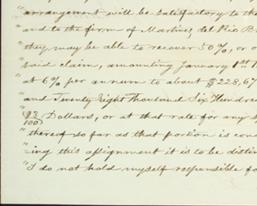 " arrangement will be satisfactory to the
" and to the firm of Martinez, del Rio B
" they may be able to recover 50%, or o
" said claim, amounting January 1st 1
" at 6% per annum to about $228,67
" and Twenty Eight Thousand Six Hundred
" 100 Dollars, or at that rate for any s
" thereof so far as that portion is conc
" ing this assignment it is to be distin
" I do not hold myself responsible fo